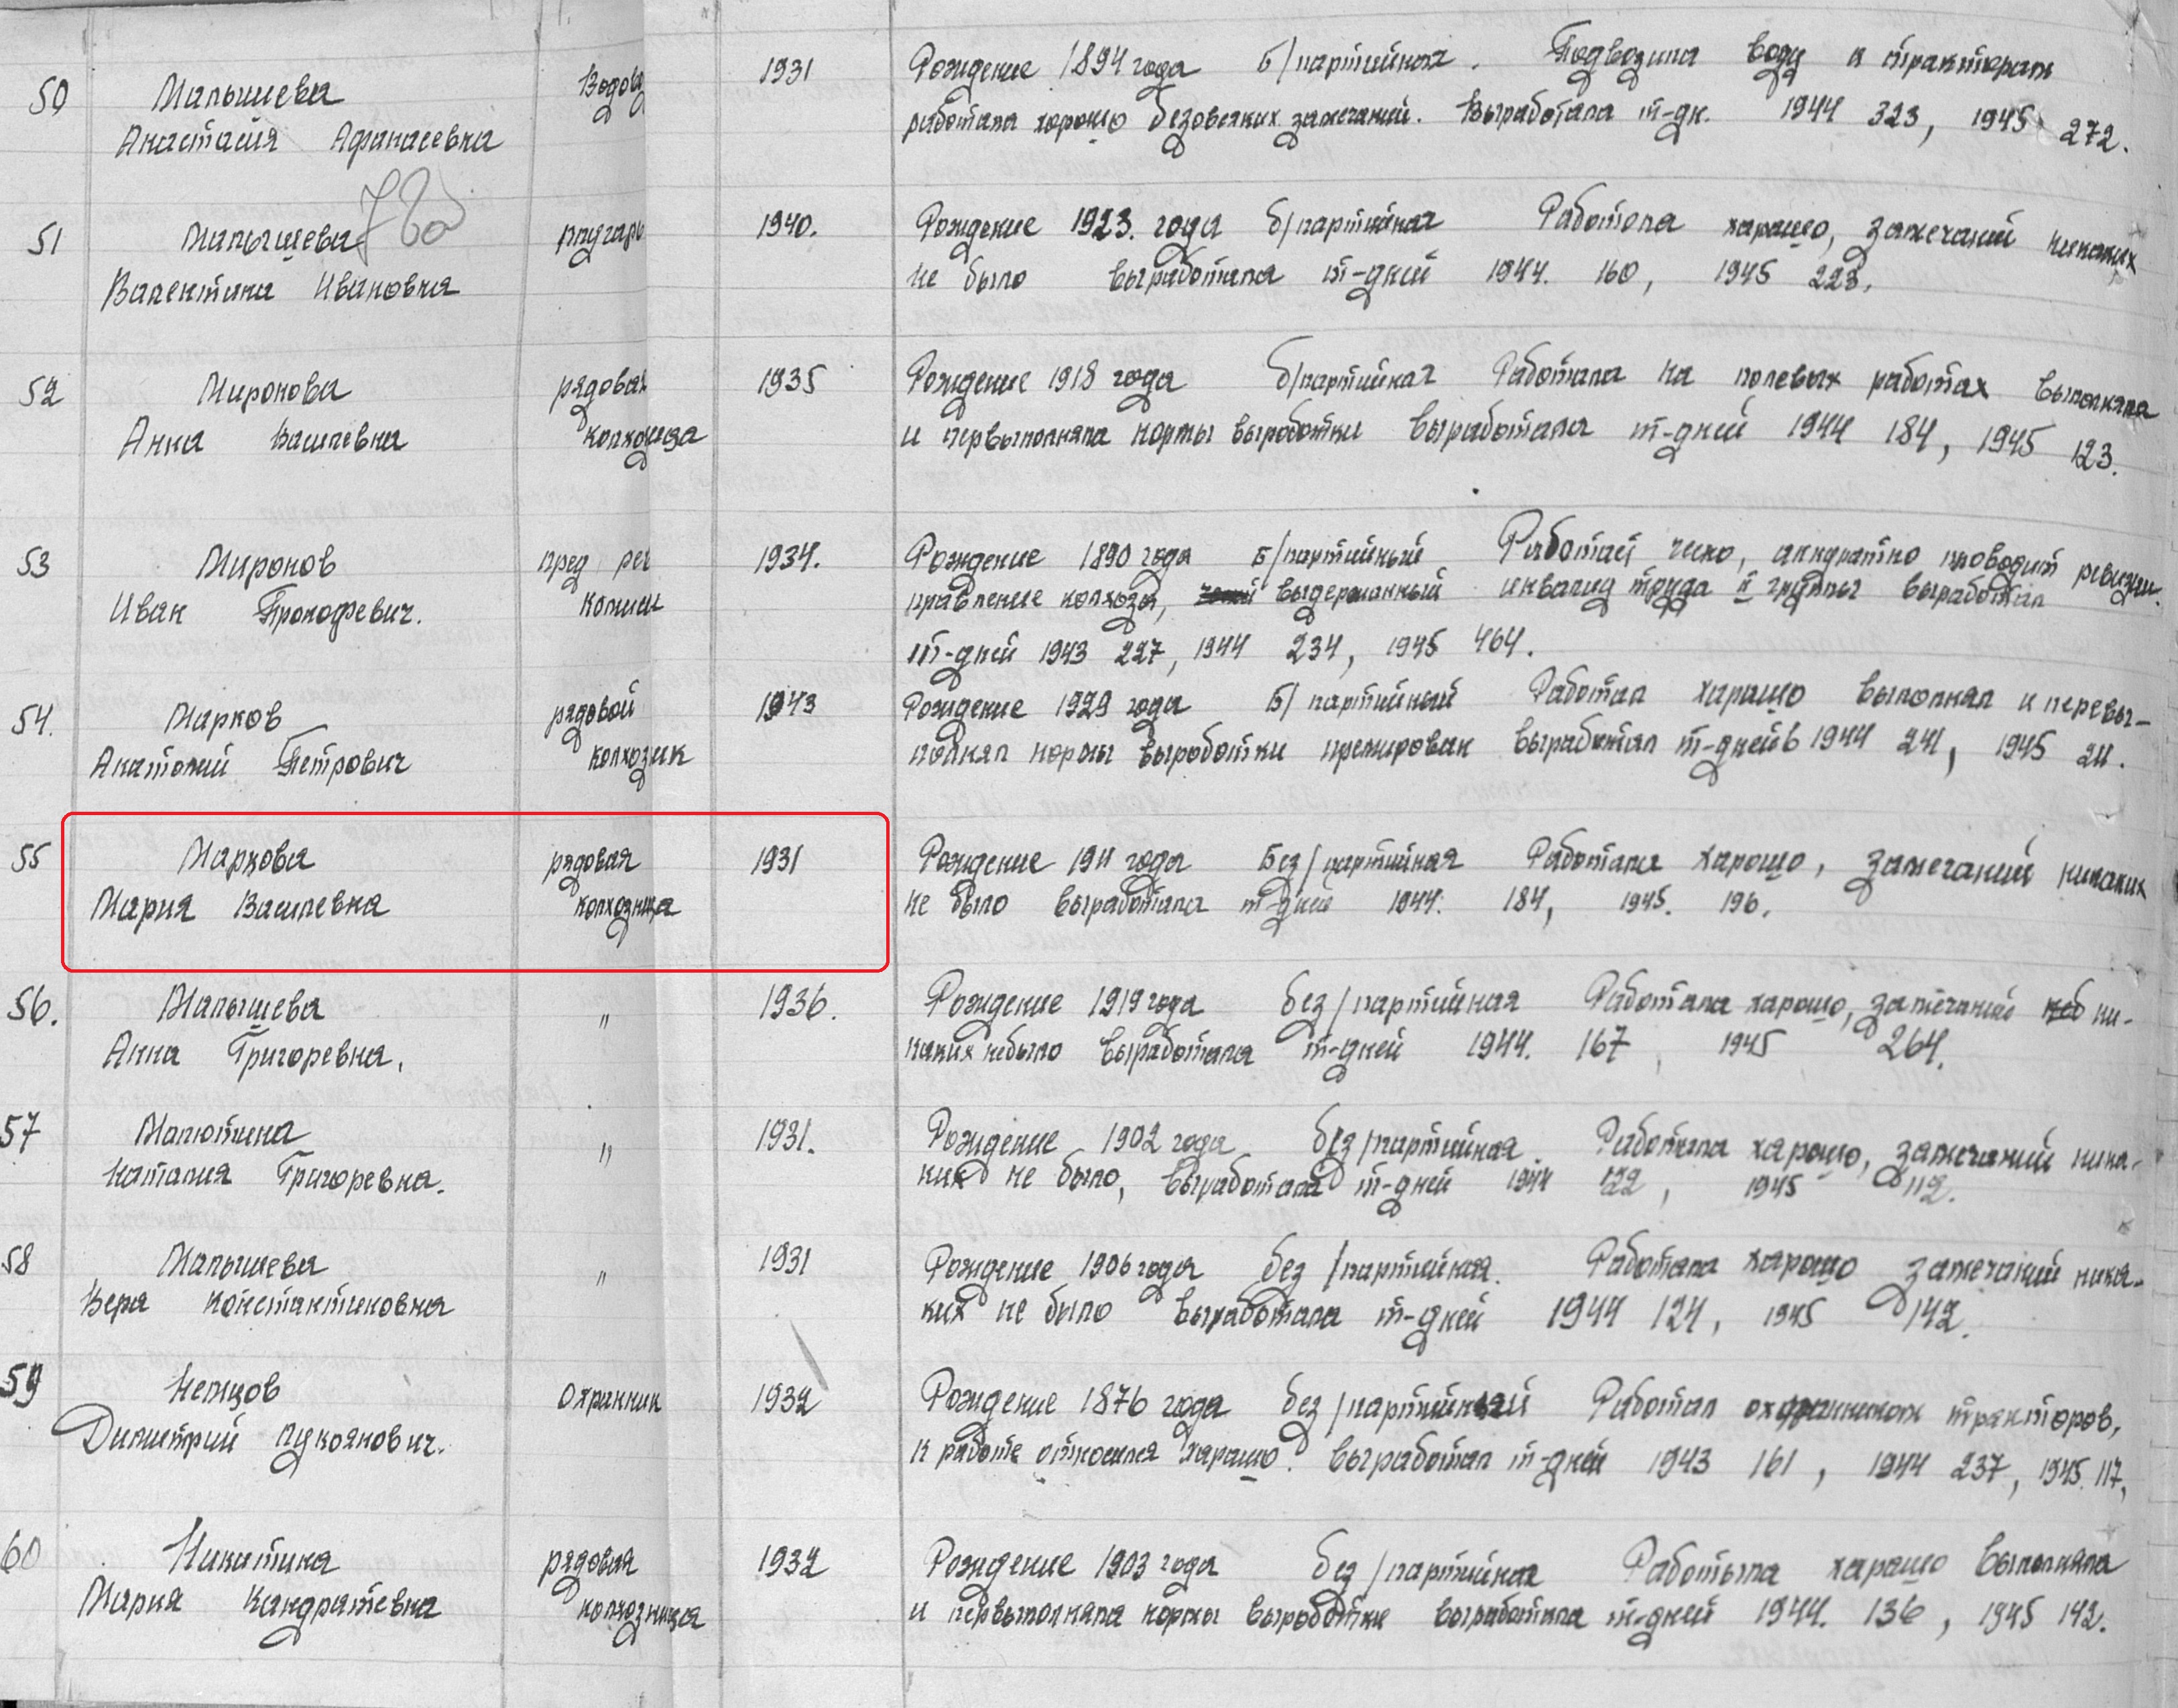 50 Малышева Водов 1931 Рождение 1894 года Б/партийная. Подвозила воду к тракторам
Анастасия Афанасевна работала хорошо безовсяких замечаний. Выработала т-дн. 1944 323, 1945 272.
51 Малышева 1940. Рождение 1923. года б/партийная Работала харашо, замечаний никаких
Валентина Ивановна не было выработала т-дней 1944. 160, 1945 223.
52 Миронова рядовая 1935 Рождение 1918 года б/партийная Работала на полевых работах выполняла
Анна Васильевна колхозница и первыполняла нормы выработки выработала т-дней 1944 184, 1945 123.
53 Миронов пред рев 1934. Рождение 1890 года Б/партийный Работает аккуратно проводит ревизии
Иван Прокофевич. комиси правление колхоза, выдержанный инвалид труда II группы выработал
т-дней 1943 227, 1944 234, 1945 464.
54. Марков рядовой 1943 Рождение 1929 года Б/партийный Работал харашо выполнял и перевы-
Анатолий Петрович колхозник полнял нормы выроботки премирован выработал т-дней в 1944 241, 1945 211.
55 Маркова рядовая 1931 Рождение 1911 года Без/партийная Работала харошо, замечаний никаких
Мария Василевна колхозница не было выработала т-дней 1944. 184, 1945. 196.
56. Малышева " 1936. Рождение 1919 года без/партийная Работала харошо, замечаний ни-
Анна Григоревна. каких небыло выработала т-дней 1944. 167, 1945 264.
57 Малютина " 1931. Рождение 1902 года без/партийная. Работала харошо, замечаний ника-
Наталия Григоревна. ких не было, выработала т-дней 1944 122, 1945 112.
58 Малышева " 1931 Рождение 1906 года без/партийная. Работала харашо замечаний ника-
Вера Константиновна ких не было выработала т-дней 1944 124, 1945 142.
59 Немцов Охранник 1932 Рождение 1876 года без/партийный Работал охранником тракторов,
Димитрий Лукоянович. к работе относился харашо. выработал т-дней 1943 161, 1944 237, 1945. 117,
60 Никитина рядовая 1932 Рождение 1903 года без/партийная Работала харашо выполняла
Мария Кандратевна колхозница и первыполняла нормы выроботки выработала т-дней 1944. 136, 1945 142.